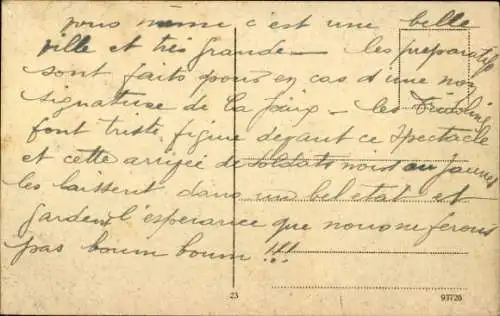 pour même c'est une belle
ville et très grande - les préparatifs
sont faits pour en cas d'une non
signature de la Paix - les
font triste figure devant ce spectacle
et cette arrivée de soldats nous
les laissent dans un bel etat et
gardens l'esperance que nous ne ferons
pas boum boum !!!
23
93726